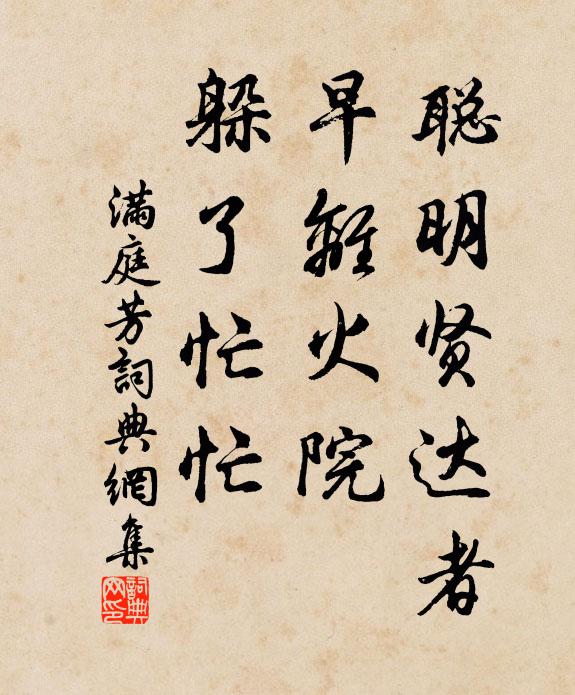 聪明贤达者
早離火院
躲了忙忙
满庭芳詞典網集
詞典網印